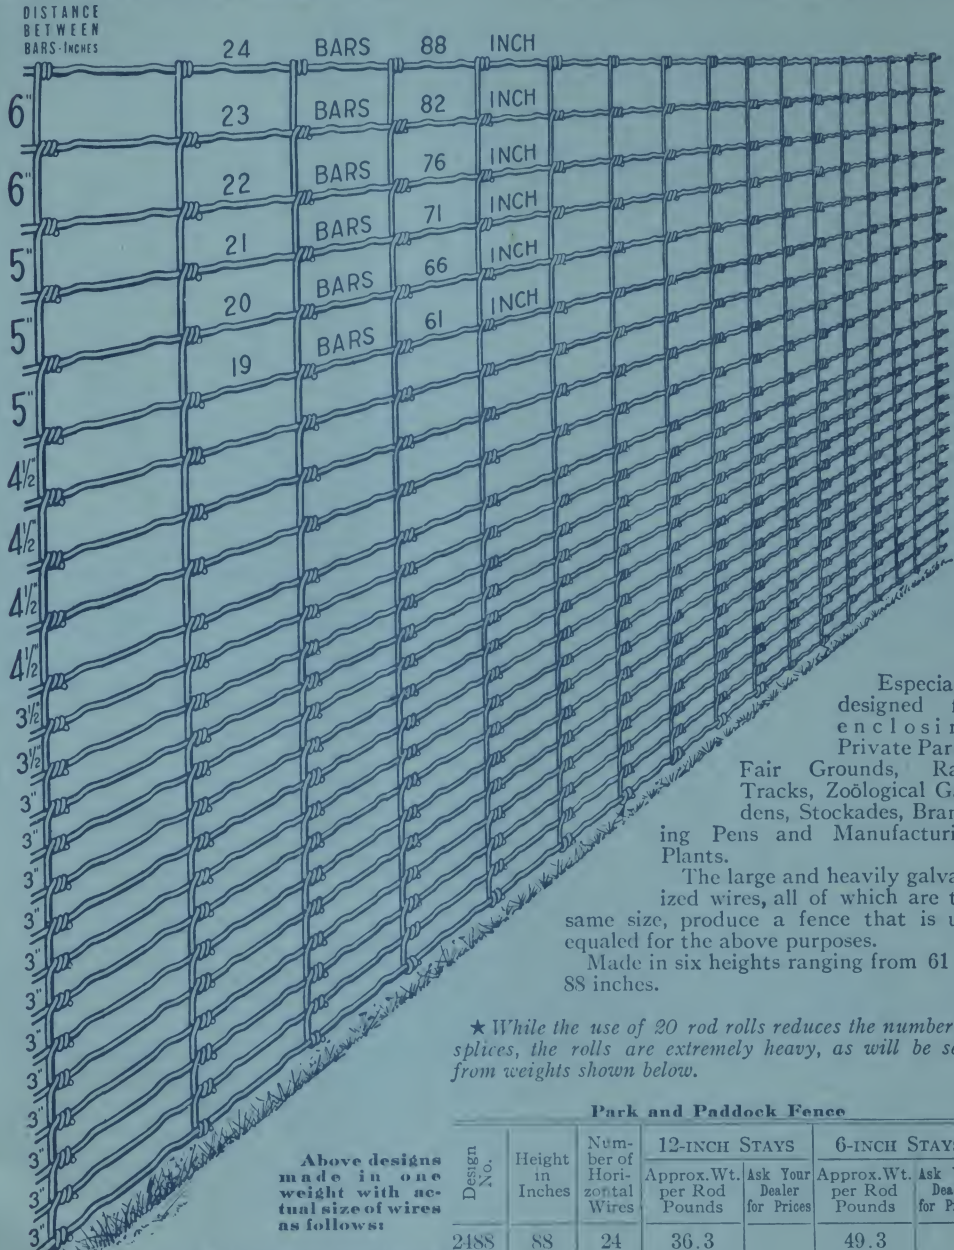 DISTANCE
BETWEEN
BARS-INCHES
24 BARS 88 INCH
6"
23 BARS 82 INCH
6"
22 BARS 76 INCH
5"
21 BARS 71 INCH
5"
20 BARS 66 INCH
5"
19 BARS 61 INCH
4½"
4½"
4½"
4½"
3½"
3½"
3"
3"
3"
3"
3"
3"
3"
3"
3"
3"
3"
3"
Especia
designed
enclosin
Private Par
Fair Grounds, Ra
Tracks, Zoölogical G
dens, Stockades, Bran
ing Pens and Manufacturi
Plants.
The large and heavily galva
ized wires, all of which are t
same size, produce a fence that is u
equaled for the above purposes.
Made in six heights ranging from 61
88 inches.
★ While the use of 20 rod rolls reduces the number
splices, the rolls are extremely heavy, as will be se
from weights shown below.
Above designs
made in one
weight with ac-
tual size of wires
as follows:
Park and Paddock Fence
Design No. Height in Inches Num-ber of Hori-zontal Wires 12-INCH STAYS 6-INCH STAYS
Approx. Wt. per Rod Pounds Ask Your Dealer for Prices Approx. Wt. per Rod Pounds Ask Y Dea for P
2488 88 24 36.3 49.3